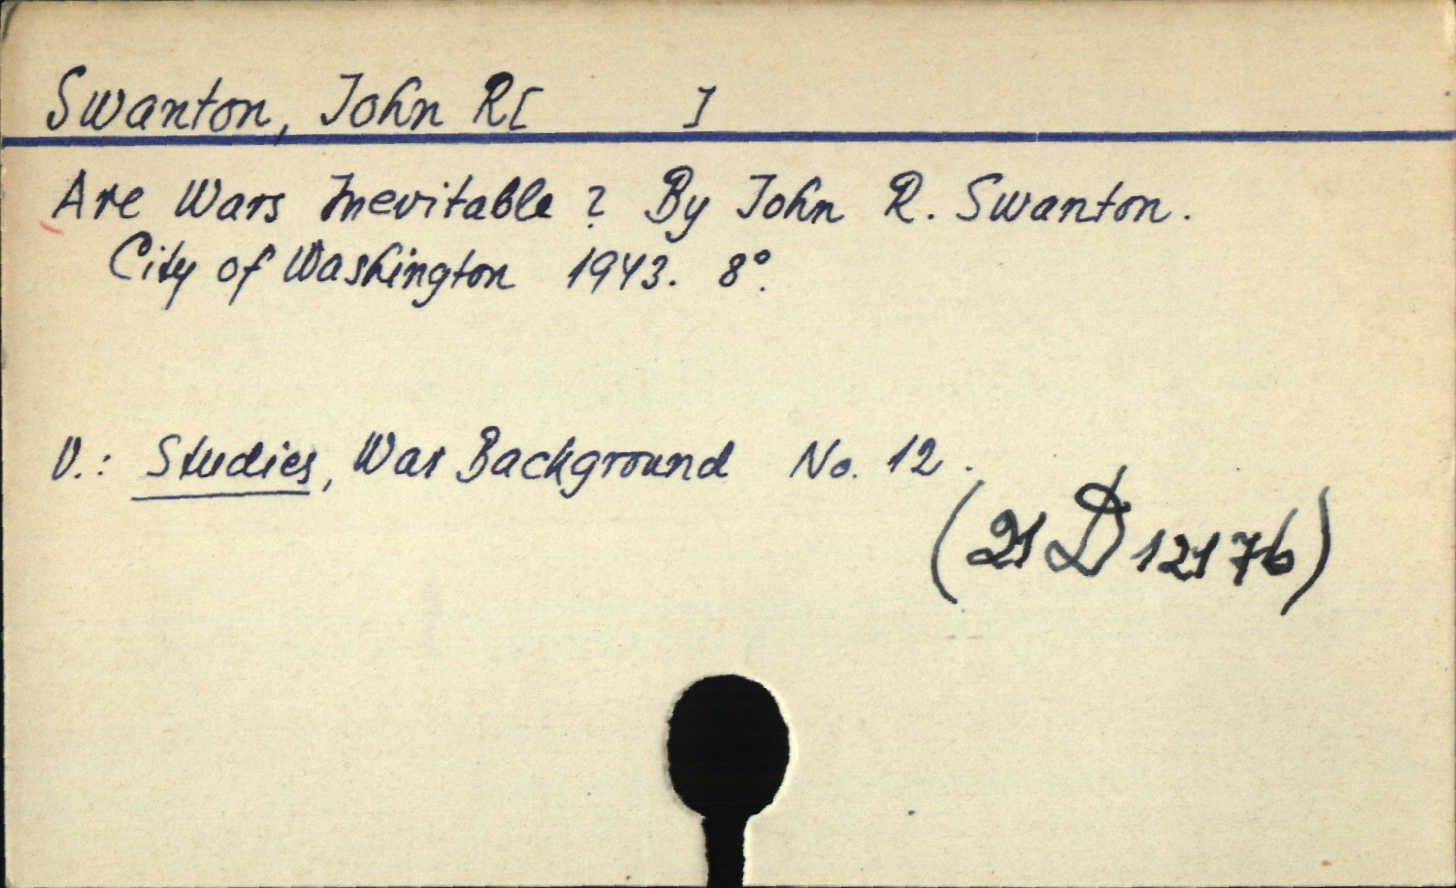 Swanton, John R[ ]
Are Wars Inevitable? By John R. Swanton.
City of Washington 1943. 8°.
V.: Studies, War Background No. 12.
(21 D 12176)